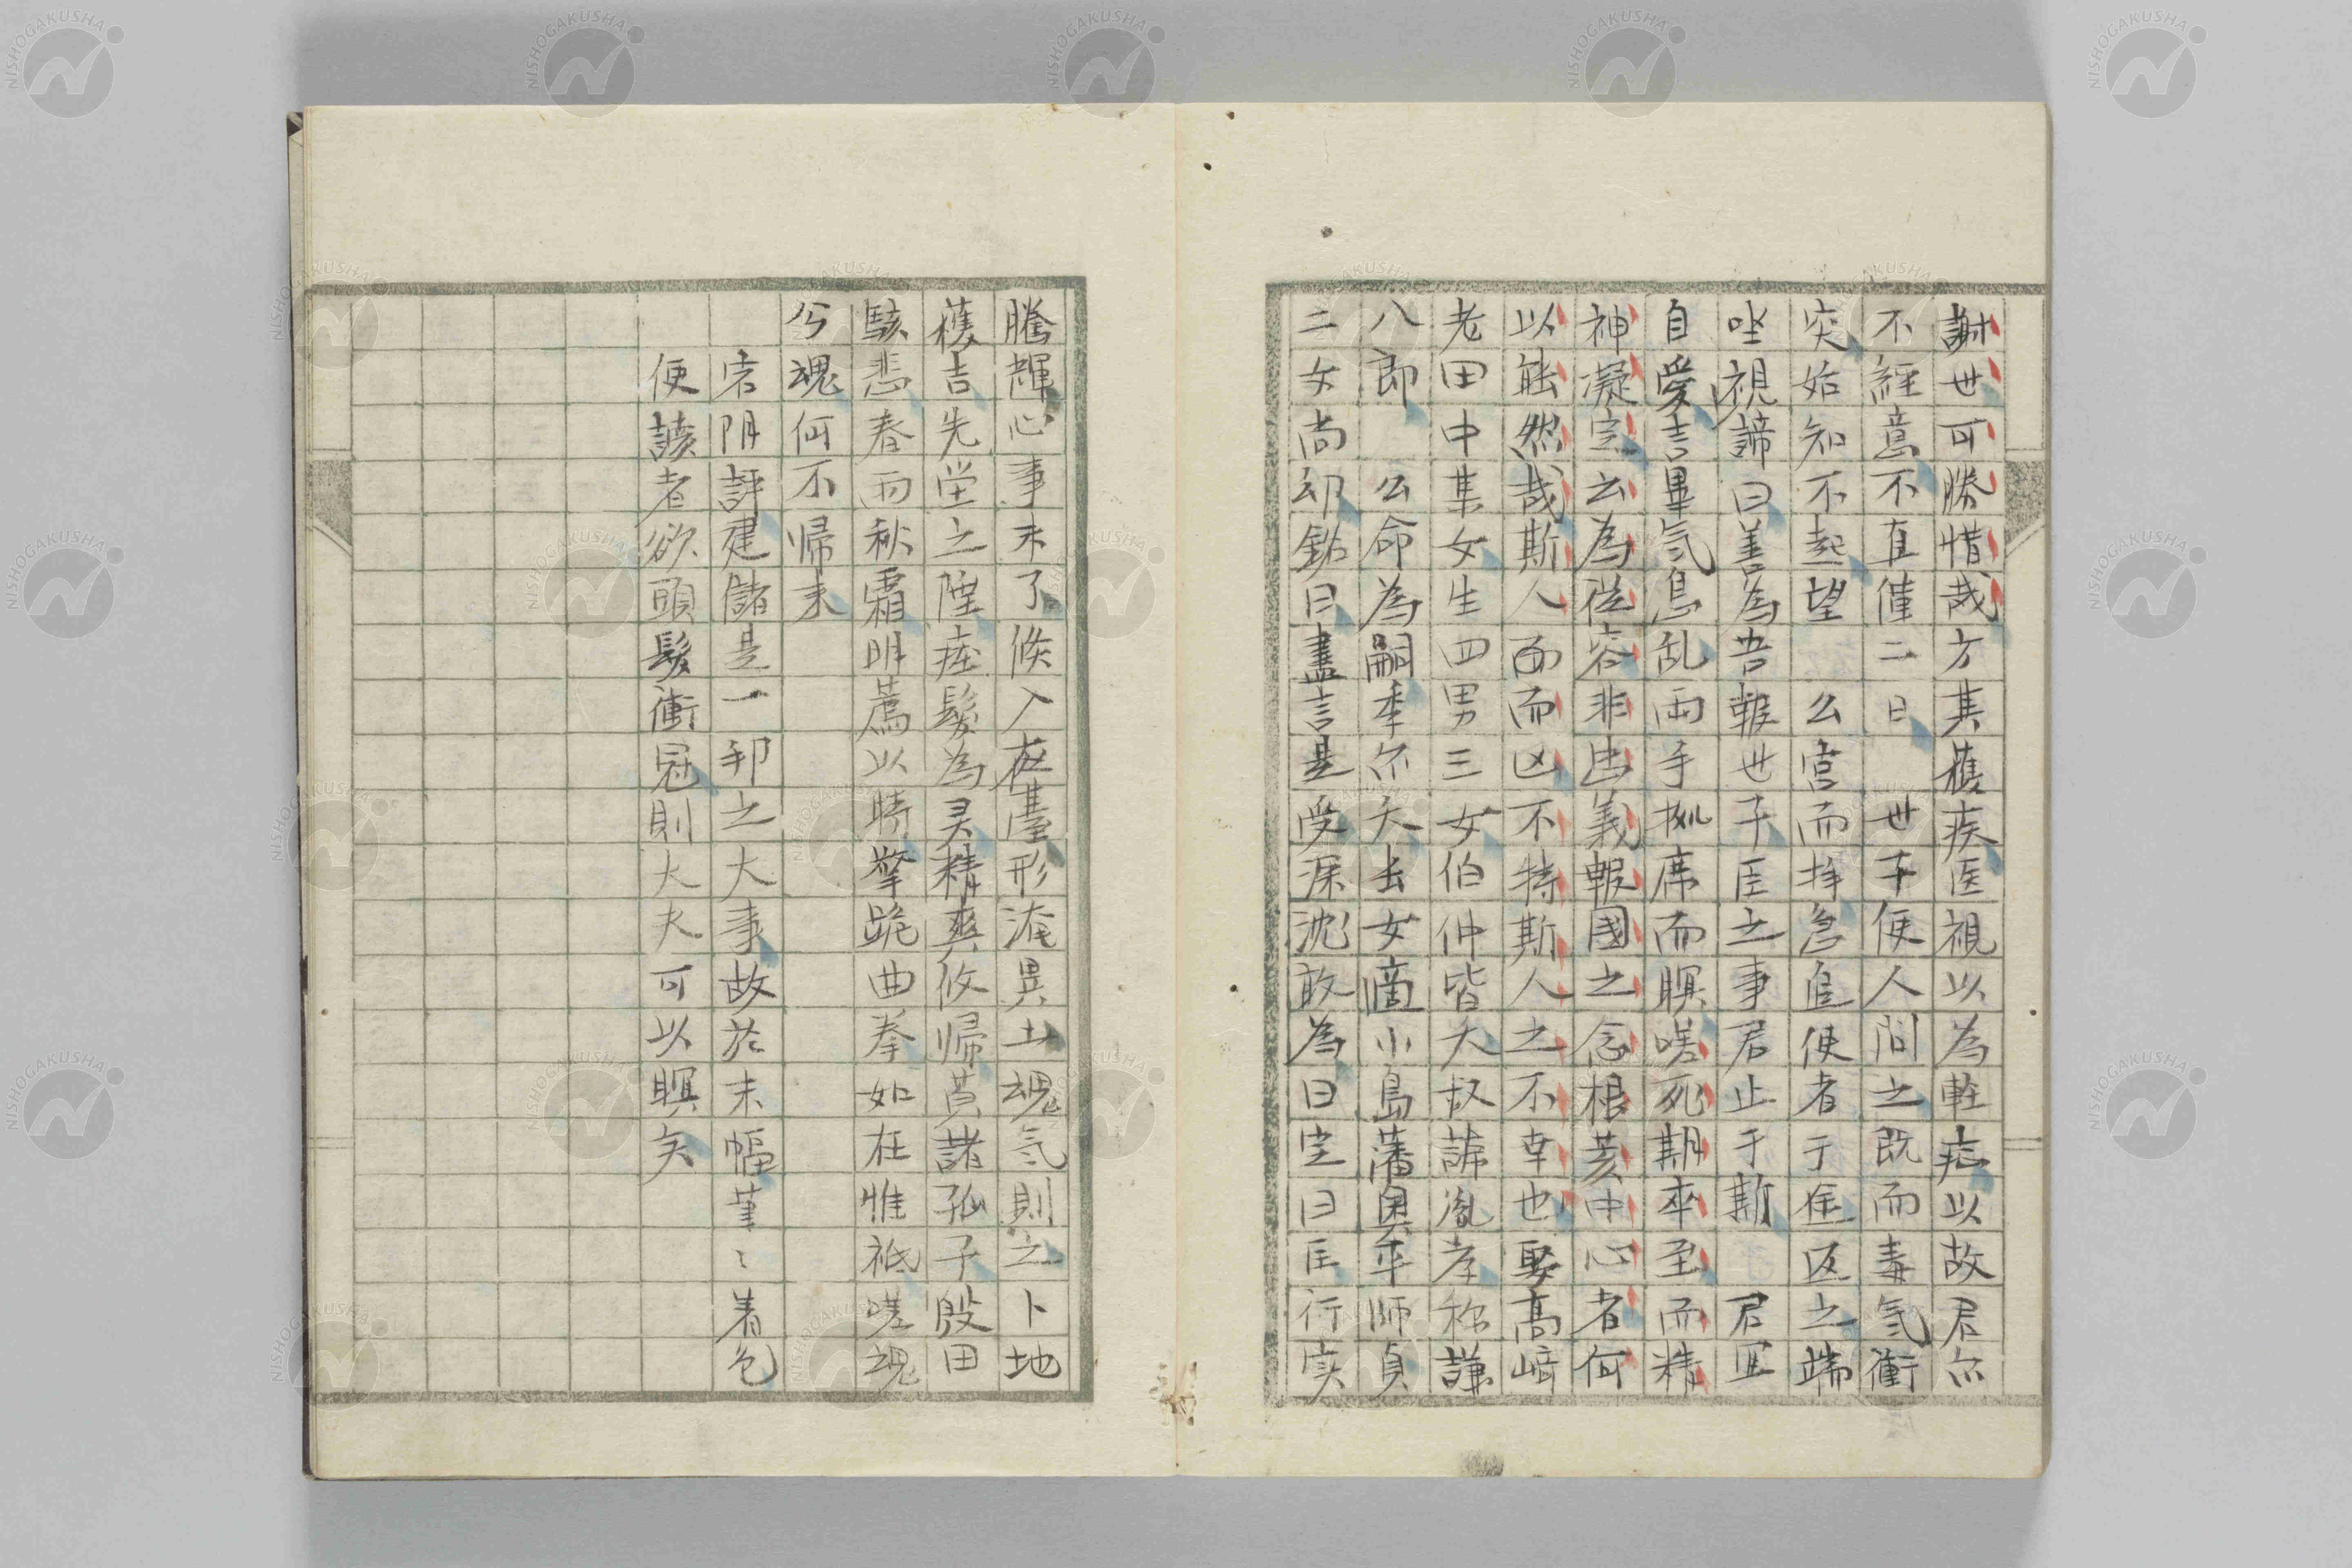 謝世可勝惜哉方其舊疾医視以為軽症以故君尓
不経意不直僅二日 世子使人問之既而毒気衝
突始知不起望 公宮而拝急追使者于途返之端
坐視諦曰善為吾報世子臣之事君止于斯 君宜
自愛言畢気息乱両手拠席而瞑嗟死期卒至而精
神凝定云為従容非忠義報國之念根荄中心者何
以能然哉斯人而而凶不特斯人之不幸也娶高﨑
老田中某女生四男三女伯仲皆夭叔諱胤孝称謙
八郎 公命為嗣季尓夭長女適小島藩奥平師貞
二女尚幼銘曰盡言是受深沈敢為曰宏曰匡行実
騰輝心事未了倐入夜臺形淹異土魂気則之卜地
蕉吉先塋之陞瘞髮為灵精爽攸帰莫諸孤子殷田
駭悲春雨秋霜明薦以時擎跪曲拳如在惟祗嗟魂
兮魂何不帰来
宕阴評建儲是一邦之大事故於末幅筆〻着色
便読者欲頭髮衝冠則大夫可以瞑矣
NISHOGAKUSHA